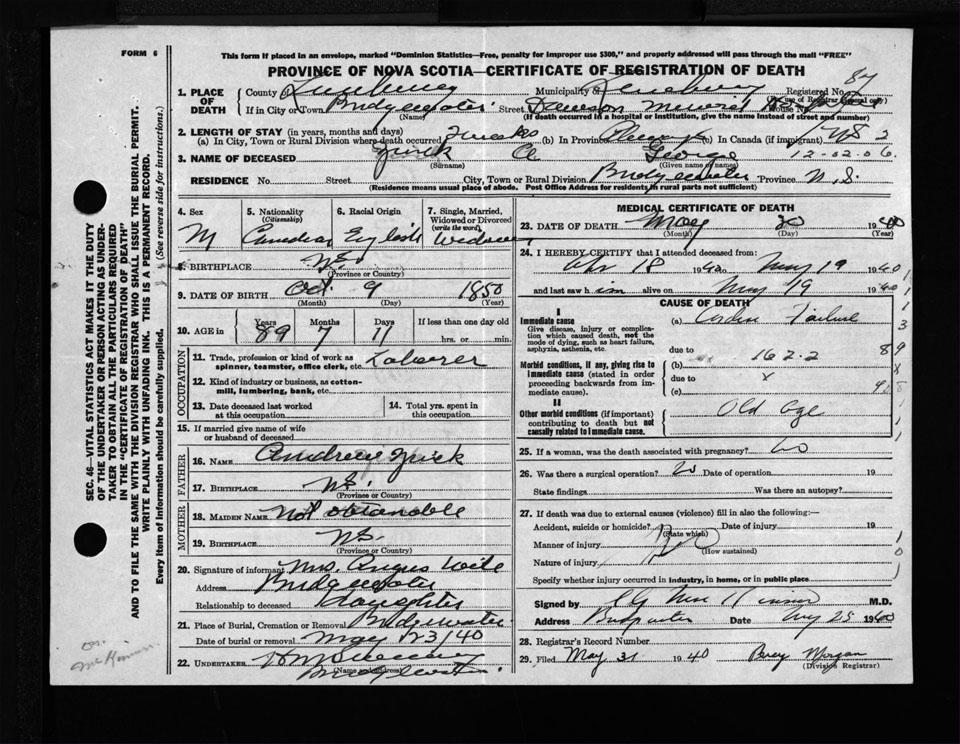 FORM 6
This form if placed in an envelope, marked "Dominion Statistics—Free, penalty for improper use $300," and properly addressed will pass through the mail "FREE"
PROVINCE OF NOVA SCOTIA—CERTIFICATE OF REGISTRATION OF DEATH
87
1. PLACE OF DEATH County Lunenburg Municipality of Lunenburg Registered No.
(For use of Registrar General only)
If in City or Town Bridgewater Street Dawson Memorial Hospital House No.
(Name) (If death occurred in a hospital or institution, give the name instead of street and number)
2. LENGTH OF STAY (in years, months and days)
(a) In City, Town or Rural Division where death occurred (b) In Province (c) In Canada (if immigrant)
3. NAME OF DECEASED Zwick George 12-02.06.
(Surname) (Given name or names)
RESIDENCE No. Street City, Town or Rural Division Bridgewater Province N.S.
(Residence means usual place of abode. Post Office Address for residents in rural parts not sufficient)
4. Sex M
5. Nationality (Citizenship) Canadian
6. Racial Origin English
7. Single, Married, Widowed or Divorced (write the word) Widower
8. BIRTHPLACE N.S.
(Province or Country)
9. DATE OF BIRTH Oct. 9 1850
(Month) (Day) (Year)
10. AGE in Years 89 Months 7 Days 11 If less than one day old hrs. or min.
OCCUPATION
11. Trade, profession or kind of work as spinner, teamster, office clerk, etc. Laborer
12. Kind of industry or business, as cotton-mill, lumbering, bank, etc.
13. Date deceased last worked at this occupation
14. Total yrs. spent in this occupation
15. If married give name of wife or husband of deceased
FATHER
16. NAME Andrew Zwick
17. BIRTHPLACE N.S.
(Province or Country)
MOTHER
18. MAIDEN NAME Not obtainable
19. BIRTHPLACE N.S.
(Province or Country)
20. Signature of informant Mrs. Angus Weile
Address Bridgewater
Relationship to deceased Daughter
21. Place of Burial, Cremation or Removal Bridgewater
Date of burial or removal May 23/40
22. UNDERTAKER
(Name and address) Bridgewater
MEDICAL CERTIFICATE OF DEATH
23. DATE OF DEATH May 20 1940
(Month) (Day) (Year)
24. I HEREBY CERTIFY that I attended deceased from:
Apr 18 1940 to May 19 1940
and last saw him alive on May 19 1940
CAUSE OF DEATH
I
Immediate cause (a) Cardiac Failure
Give disease, injury or complication which caused death, not the mode of dying, such as heart failure, asphyxia, asthenia, etc.
due to 162.2
Morbid conditions, if any, giving rise to immediate cause (stated in order proceeding backwards from immediate cause). (b)
due to x
(c)
II
Other morbid conditions (if important) contributing to death but not causally related to immediate cause. Old Age
25. If a woman, was the death associated with pregnancy? No
26. Was there a surgical operation? No Date of operation 19
State findings Was there an autopsy?
27. If death was due to external causes (violence) fill in also the following:—
Accident, suicide or homicide? Date of injury 19
(State which)
Manner of injury
(How sustained)
Nature of injury
Specify whether injury occurred in industry, in home, or in public place
Signed by M.D.
Address Bridgewater Date May 25 1940
28. Registrar's Record Number
29. Filed May 31 1940 Percy Morgan
(Division Registrar)
SEC. 46—VITAL STATISTICS ACT MAKES IT THE DUTY
OF THE UNDERTAKER OR PERSON ACTING AS UNDER-
TAKER TO OBTAIN ALL THE PARTICULARS REQUIRED
IN THE "CERTIFICATE OF REGISTRATION OF DEATH"
AND TO FILE THE SAME WITH THE DIVISION REGISTRAR WHO SHALL ISSUE THE BURIAL PERMIT.
WRITE PLAINLY WITH UNFADING INK. THIS IS A PERMANENT RECORD.
Every item of information should be carefully supplied. (See reverse side for instructions.)